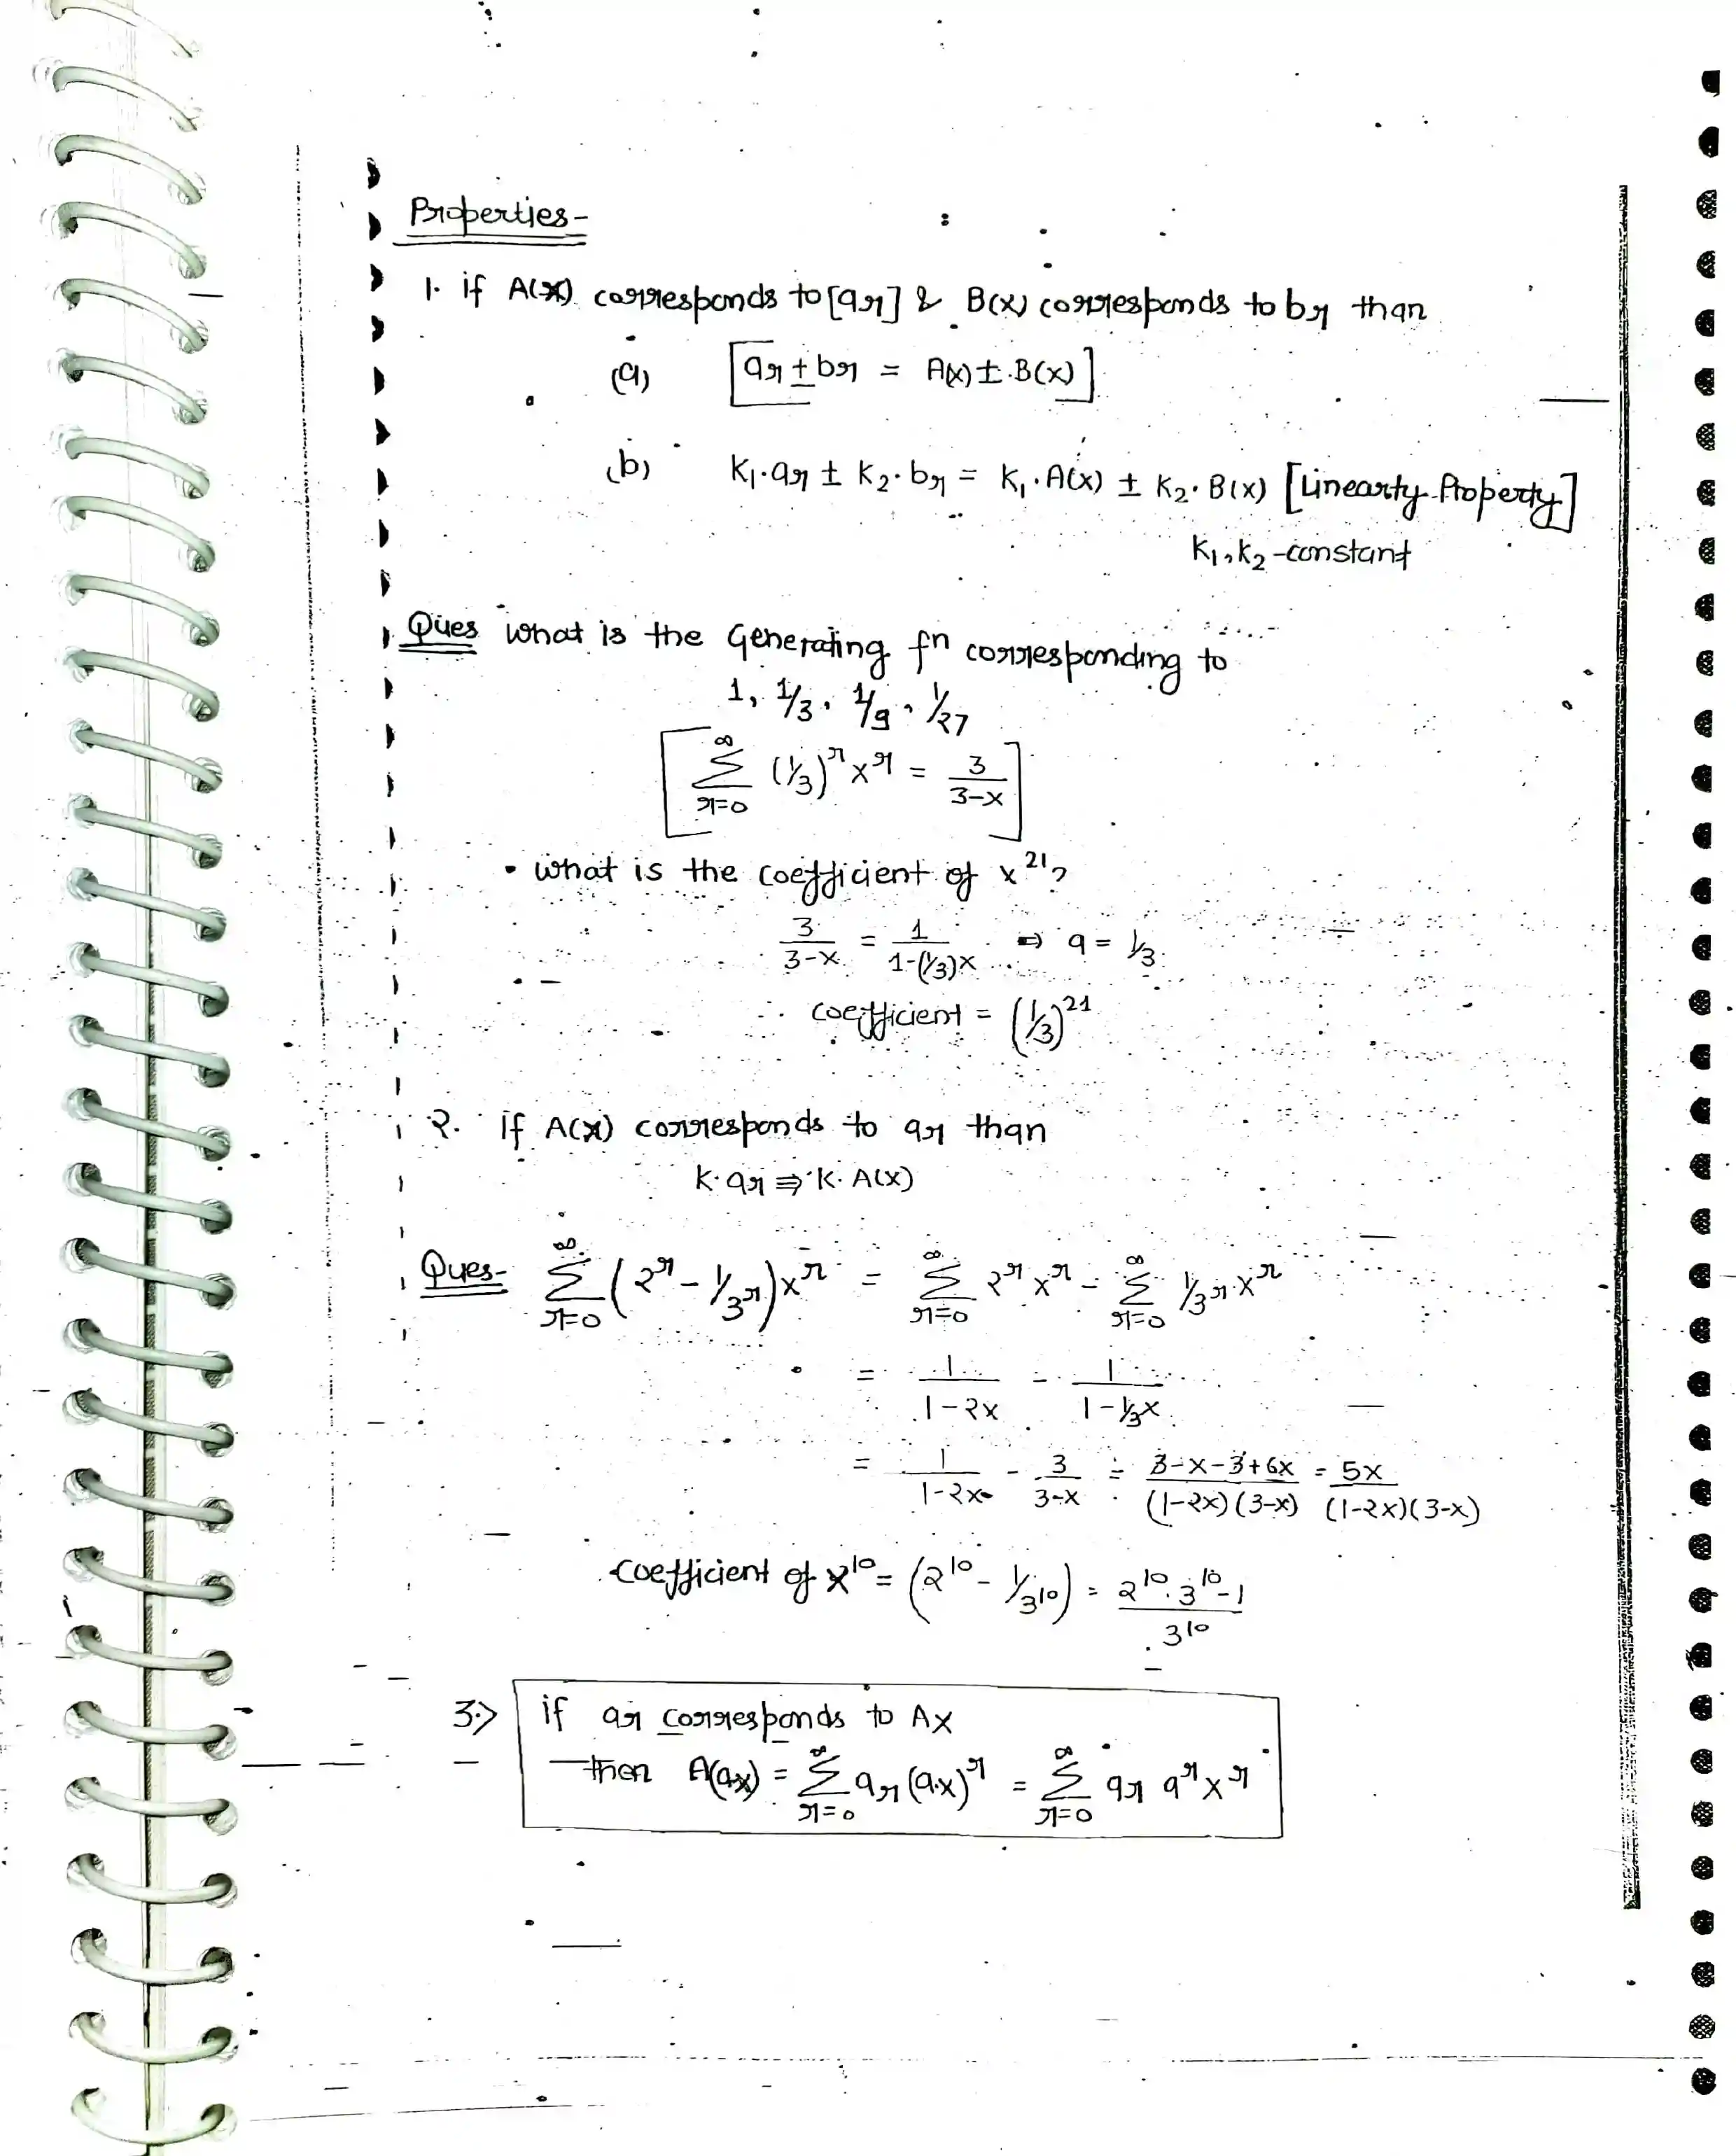 Properties-
1. if A(x) corresponds to [ar] & B(x) corresponds to br than
(a) [ar ± br = A(x) ± B(x)]
(b) K₁.ar ± K₂.br = K₁.A(x) ± K₂.B(x) [Linearty Property]
K₁,K₂-constant
Ques what is the Generating fn corresponding to
1, 1/3, 1/9, 1/27
[∞∑r=0 (1/3)^r x^r = 3/(3-x)]
• what is the coefficient of x^21?
3/(3-x) = 1/(1-(1/3)x) ⇒ a = 1/3
∴ coefficient = (1/3)^21
2. if A(x) corresponds to ar than
K.ar ⇒ K.A(x)
Ques- ∞∑r=0 (2^r - 1/3^r)x^r = ∞∑r=0 2^r x^r - ∞∑r=0 1/3^r.x^r
= 1/(1-2x) - 1/(1-1/3x)
= 1/(1-2x) - 3/(3-x) = (3-x-3+6x)/((1-2x)(3-x)) = 5x/((1-2x)(3-x))
coefficient of x^10 = (2^10 - 1/3^10) = (2^10.3^10-1)/3^10
3.> if ar corresponds to Ax
then A(ax) = ∞∑r=0 ar(a.x)^r = ∞∑r=0 ar a^r x^r